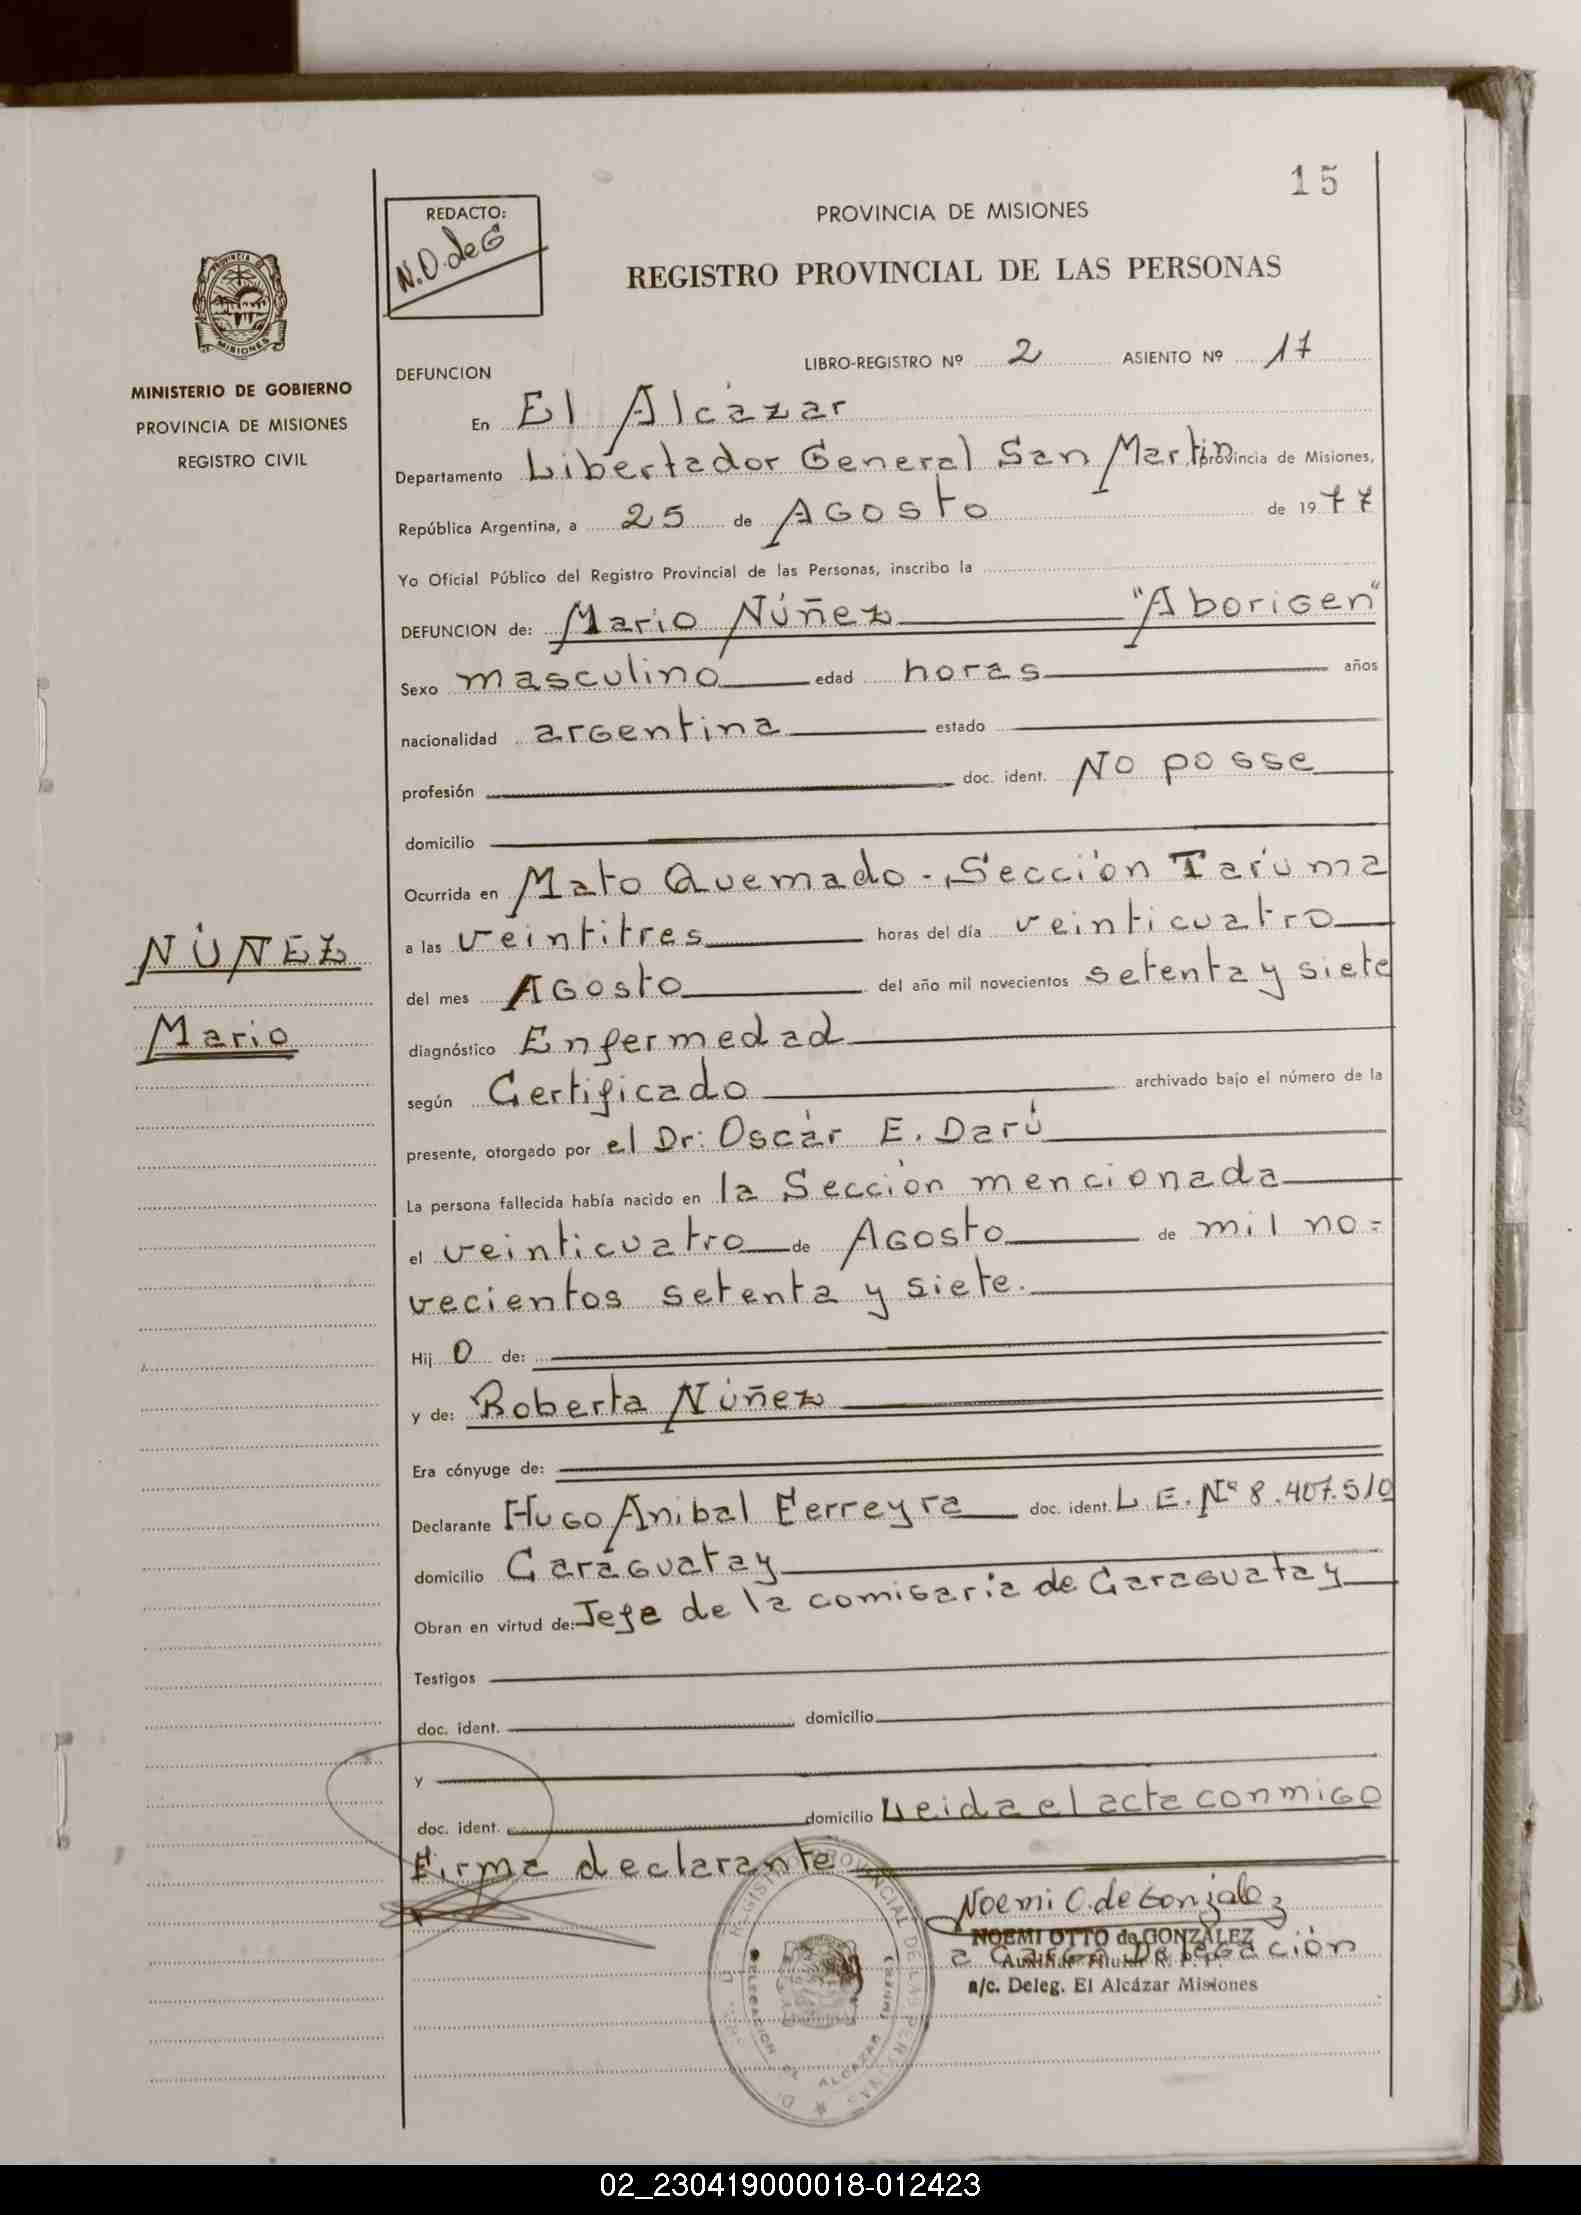 15
REDACTO:
N.O. de G
PROVINCIA DE MISIONES
REGISTRO PROVINCIAL DE LAS PERSONAS
PROVINCIA DE
MISIONES
MINISTERIO DE GOBIERNO
PROVINCIA DE MISIONES
REGISTRO CIVIL
DEFUNCION
LIBRO-REGISTRO Nº 2 ASIENTO Nº 17
En El Alcázar
Departamento Libertador General San Martin provincia de Misiones,
República Argentina, a 25 de Agosto de 1977
Yo Oficial Público del Registro Provincial de las Personas, inscribo la
DEFUNCION de: Mario Núñez "Aborigen"
Sexo masculino edad horas años
nacionalidad argentina estado
profesión doc. ident. No posse
domicilio
Ocurrida en Mato Quemado-, Sección Tarúma
a las veintitres horas del día veinticuatro
del mes Agosto del año mil novecientos setenta y siete
diagnóstico Enfermedad
según Certificado archivado bajo el número de la
presente, otorgado por el Dr: Oscár E. Darú
La persona fallecida había nacido en la Sección mencionada
el veinticuatro de Agosto de mil no=
vecientos setenta y siete.
Hij o de:
y de: Roberta Núñez
Era cónyuge de:
Declarante Hugo Anibal Ferreyra doc. ident. L.E. Nº 8.407.510
domicilio Caraguatay
Obran en virtud de: Jefe de la comisaría de Caraguatay
Testigos
doc. ident. domicilio
y
doc. ident. domicilio Leida el acta conmigo
Firma declarante
NÚÑEZ
Mario
Noemi O. de Gonzalez
NOEMI OTTO de GONZALEZ
a cargo Delegación
Auxiliar Titular R. P. P.
a/c. Deleg. El Alcázar Misiones
REGISTRO PROVINCIAL DE LAS PERSONAS
DELEGACION EL ALCAZAR (MISIONES)
02_230419000018-012423